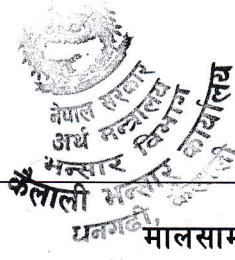 नेपाल सरकार
अर्थ मन्त्रालय
भन्सार विभाग
कैलाली भन्सार कार्यालय
धनगढी,
मालसाम